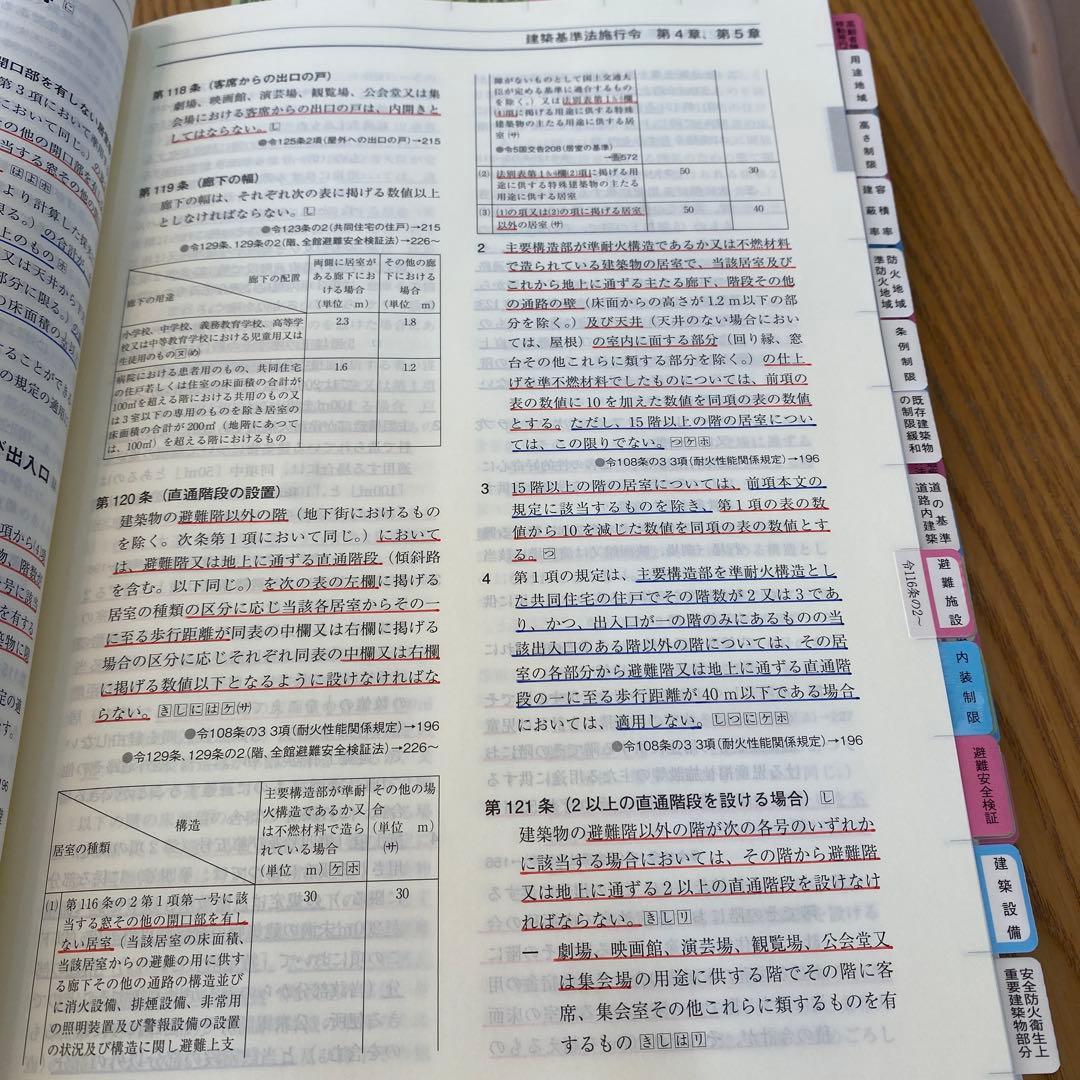 建築基準法施行令　第4章、第5章
第118条（客席からの出口の戸）
劇場、映画館、演芸場、観覧場、公会堂又は集
会場における客席からの出口の戸は、内開きと
してはならない。し
●令125条2項（屋外への出口の戸）→215
第119条（廊下の幅）
廊下の幅は、それぞれ次の表に掲げる数値以上
としなければならない。し
●令123条の2（共同住宅の住戸）→215
●令129条、129条の2（階、全館避難安全検証法）→226～
廊下の配置
廊下の用途
両側に居室が
ある廊下にお
ける場合
（単位　m）
その他の廊
下における
場合
（単位　m）
小学校、中学校、義務教育学校、高等学
校又は中等教育学校における児童用又は
生徒用のもの
2.3
1.8
病院における患者用のもの、共同住宅
の住戸若しくは住室の床面積の合計が
100㎡を超える階における共用のもの又
は3室以下の専用のものを除き居室の
床面積の合計が200㎡（地階にあつて
は、100㎡）を超える階におけるもの
1.6
1.2
第120条（直通階段の設置）
建築物の避難階以外の階（地下街におけるもの
を除く。次条第1項において同じ。）において
は、避難階又は地上に通ずる直通階段（傾斜路
を含む。以下同じ。）を次の表の左欄に掲げる
居室の種類の区分に応じ当該各居室からその一
に至る歩行距離が同表の中欄又は右欄に掲げる
場合の区分に応じそれぞれ同表の中欄又は右欄
に掲げる数値以下となるように設けなければな
らない。きしにはケサ
●令108条の3 3項（耐火性能関係規定）→196
●令129条、129条の2（階、全館避難安全検証法）→226～
構造
居室の種類
主要構造部が準耐
火構造であるか又
は不燃材料で造ら
れている場合
（単位　m）ケホ
その他の場
合
（単位　m）
（サ）
(1) 第116条の2第1項第一号に該
当する窓その他の開口部を有し
ない居室（当該居室の床面積、
当該居室からの避難の用に供す
る廊下その他の通路の構造並び
に消火設備、排煙設備、非常用
の照明装置及び警報設備の設置
の状況及び構造に関し避難上支
30
30
障がないものとして国土交通大
臣が定める基準に適合するもの
を除く。）又は法別表第1い欄
(4)項に掲げる用途に供する特殊
建築物の主たる用途に供する居
室（サ）
●令5国交告208（居室の基準）
→告572
(2) 法別表第1い欄(2)項に掲げる用
途に供する特殊建築物の主たる
用途に供する居室
50
30
(3) (1)の項又は(2)の項に掲げる居室
以外の居室（サ）
50
40
2　主要構造部が準耐火構造であるか又は不燃材料
で造られている建築物の居室で、当該居室及び
これから地上に通ずる主たる廊下、階段その他
の通路の壁（床面からの高さが1.2m以下の部
分を除く。）及び天井（天井のない場合におい
ては、屋根）の室内に面する部分（回り縁、窓
台その他これらに類する部分を除く。）の仕上
げを準不燃材料でしたものについては、前項の
表の数値に10を加えた数値を同項の表の数値
とする。ただし、15階以上の階の居室につい
ては、この限りでない。つケホ
●令108条の3 3項（耐火性能関係規定）→196
3　15階以上の階の居室については、前項本文の
規定に該当するものを除き、第1項の表の数
値から10を減じた数値を同項の表の数値とす
る。つ
4　第1項の規定は、主要構造部を準耐火構造とし
た共同住宅の住戸でその階数が2又は3であ
り、かつ、出入口が一の階のみにあるものの当
該出入口のある階以外の階については、その居
室の各部分から避難階又は地上に通ずる直通階
段の一に至る歩行距離が40m以下である場合
においては、適用しない。しつにケホ
●令108条の3 3項（耐火性能関係規定）→196
第121条（2以上の直通階段を設ける場合）し
建築物の避難階以外の階が次の各号のいずれか
に該当する場合においては、その階から避難階
又は地上に通ずる2以上の直通階段を設けなけ
ればならない。きしリ
一　劇場、映画館、演芸場、観覧場、公会堂又
は集会場の用途に供する階でその階に客
席、集会室その他これらに類するものを有
するもの きしはリ
用途地域
高さ制限
容積率
建蔽率
防火地域
準防火地域
条例制限
既存建築物
の制限緩和
道の基準
道路内建築
避難施設
令116条の2～
内装制限
避難安全検証
建築設備
安全防火衛生上
重要建築物部分